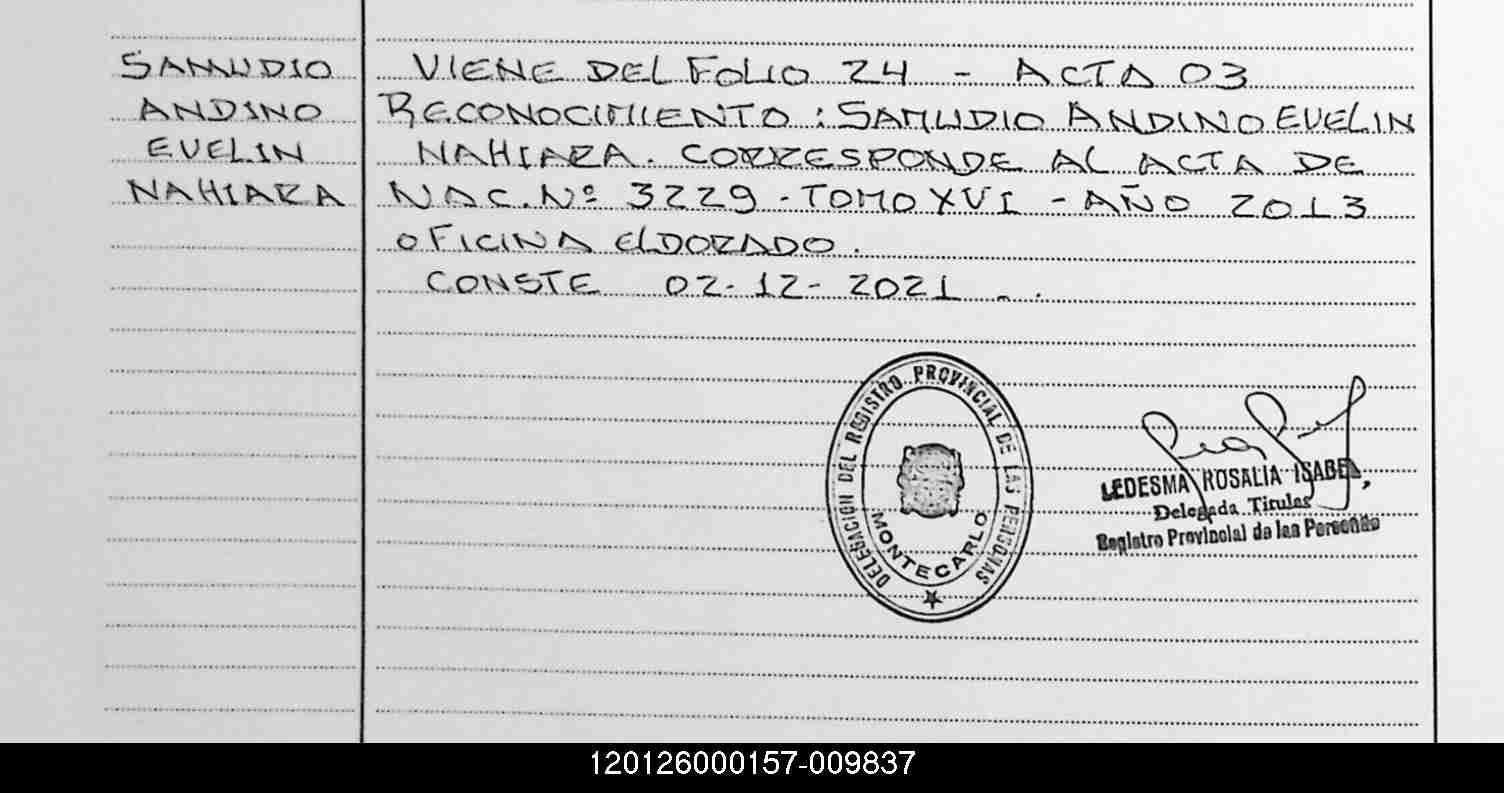 SAMUDIO
ANDINO
EVELIN
NAHIARA
VIENE DEL FOLIO 24 - ACTA 03
RECONOCIMIENTO : SAMUDIO ANDINO EVELIN
NAHIARA. CORRESPONDE AL ACTA DE
NAC. Nº 3229 - TOMO XVI - AÑO 2013
OFICINA ELDORADO.
CONSTE 02-12-2021 - .
DELEGACION DEL REGISTRO PROVINCIAL DE LAS PERSONAS
MONTECARLO
LEDESMA ROSALIA ISABEL
Delegada Titular
Registro Provincial de las Personas
120126000157-009837